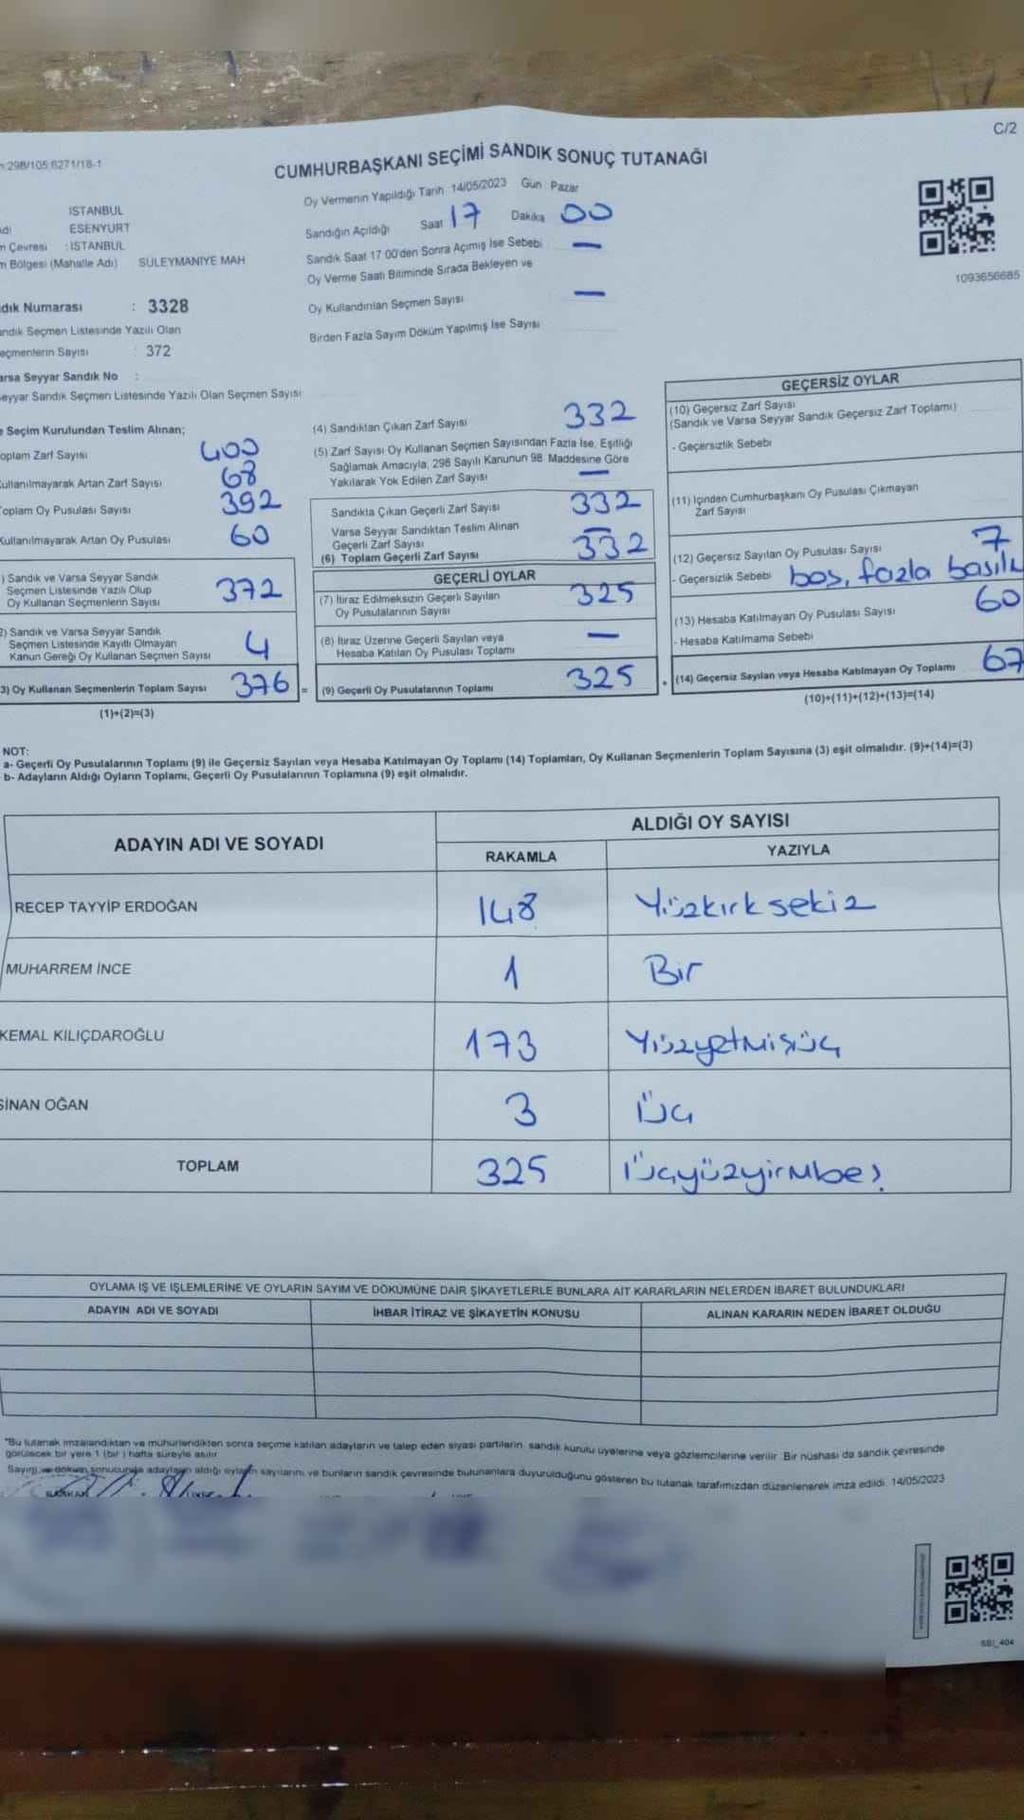 C/2
298/105 6271/18-1
CUMHURBAŞKANI SEÇİMİ SANDIK SONUÇ TUTANAĞI
Oy Vermenin Yapıldığı Tarih: 14/05/2023 Gün: Pazar
Sandığın Açıldığı Saat 17 Dakika 00
Sandık Saat 17 00'den Sonra Açımış İse Sebebi —
Oy Verme Saati Bitiminde Sırada Bekleyen ve
Oy Kullandırılan Seçmen Sayısı —
Birden Fazla Sayım Döküm Yapılmış İse Sayısı
İSTANBUL
ESENYURT
Çevresi : İSTANBUL
Bölgesi (Mahalle Adı) SÜLEYMANİYE MAH
1093656685
dık Numarası : 3328
andık Seçmen Listesinde Yazılı Olan
eçmenlerin Sayısı 372
arsa Seyyar Sandık No :
eyyar Sandık Seçmen Listesinde Yazılı Olan Seçmen Sayısı
Seçim Kurulundan Teslim Alınan;
oplam Zarf Sayısı 400
ullanılmayarak Artan Zarf Sayısı 68
oplam Oy Pusulası Sayısı 392
ullanılmayarak Artan Oy Pusulası 60
) Sandık ve Varsa Seyyar Sandık
Seçmen Listesinde Yazılı Olup
Oy Kullanan Seçmenlerin Sayısı 372
2) Sandık ve Varsa Seyyar Sandık
Seçmen Listesinde Kayıtlı Olmayan
Kanun Gereği Oy Kullanan Seçmen Sayısı 4
3) Oy Kullanan Seçmenlerin Toplam Sayısı 376 =
(1)+(2)=(3)
(4) Sandıktan Çıkan Zarf Sayısı 332
(5) Zarf Sayısı Oy Kullanan Seçmen Sayısından Fazla İse, Eşitliği
Sağlamak Amacıyla, 298 Sayılı Kanunun 98. Maddesine Göre
Yakılarak Yok Edilen Zarf Sayısı —
Sandıkta Çıkan Geçerli Zarf Sayısı 332
Varsa Seyyar Sandıktan Teslim Alınan
Geçerli Zarf Sayısı —
(6) Toplam Geçerli Zarf Sayısı 332
GEÇERLİ OYLAR
(7) İtiraz Edilmeksizin Geçerli Sayılan
Oy Pusulalarının Sayısı 325
(8) İtiraz Üzerine Geçerli Sayılan veya
Hesaba Katılan Oy Pusulası Toplamı —
(9) Geçerli Oy Pusulalarının Toplamı 325 +
GEÇERSİZ OYLAR
(10) Geçersiz Zarf Sayısı
(Sandık ve Varsa Seyyar Sandık Geçersiz Zarf Toplamı)
- Geçersizlik Sebebi
(11) İçinden Cumhurbaşkanı Oy Pusulası Çıkmayan
Zarf Sayısı
(12) Geçersiz Sayılan Oy Pusulası Sayısı 7
- Geçersizlik Sebebi boş, fazla basılı
(13) Hesaba Katılmayan Oy Pusulası Sayısı 60
- Hesaba Katılmama Sebebi
(14) Geçersiz Sayılan veya Hesaba Katılmayan Oy Toplamı 67
(10)+(11)+(12)+(13)=(14)
NOT:
a- Geçerli Oy Pusulalarının Toplamı (9) ile Geçersiz Sayılan veya Hesaba Katılmayan Oy Toplamı (14) Toplamları, Oy Kullanan Seçmenlerin Toplam Sayısına (3) eşit olmalıdır. (9)+(14)=(3)
b- Adayların Aldığı Oyların Toplamı, Geçerli Oy Pusulalarının Toplamına (9) eşit olmalıdır.
ADAYIN ADI VE SOYADI
ALDIĞI OY SAYISI
RAKAMLA YAZIYLA
RECEP TAYYİP ERDOĞAN 148 Yüzkırksekiz
MUHARREM İNCE 1 Bir
KEMAL KILIÇDAROĞLU 173 Yüzyetmişüç
SİNAN OĞAN 3 Üç
TOPLAM 325 Üçyüzyirmibeş
OYLAMA İŞ VE İŞLEMLERİNE VE OYLARIN SAYIM VE DÖKÜMÜNE DAİR ŞİKAYETLERLE BUNLARA AİT KARARLARIN NELERDEN İBARET BULUNDUKLARI
ADAYIN ADI VE SOYADI İHBAR İTİRAZ VE ŞİKAYETİN KONUSU ALINAN KARARIN NEDEN İBARET OLDUĞU
"Bu tutanak imzalandıktan ve mühürlendikten sonra seçime katılan adayların ve talep eden siyasi partilerin sandık kurulu üyelerine veya gözlemcilerine verilir. Bir nüshası da sandık çevresinde
görülecek bir yere 1 (bir) hafta süreyle asılır
Sayım ve döküm sonucunda adayların aldığı oyların sayılarını ve bunların sandık çevresinde bulunanlara duyurulduğunu gösteren bu tutanak tarafımızdan düzenlenerek imza edildi. 14/05/2023
SBİ_404